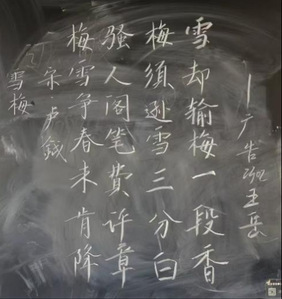 雪梅
宋 卢钺
梅雪争春未肯降
骚人阁笔费评章
梅须逊雪三分白
雪却输梅一段香
—广告班王岳